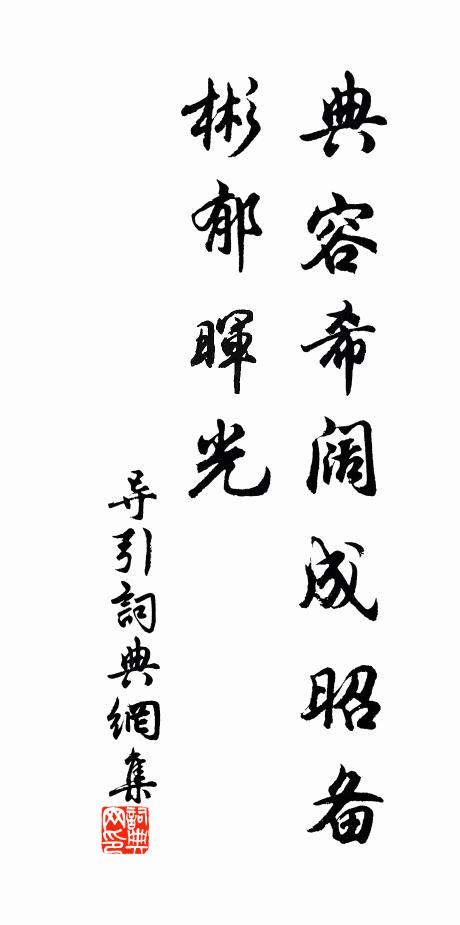 典容希阔成昭备
彬郁暉光
导引詞典網集
詞典
网印